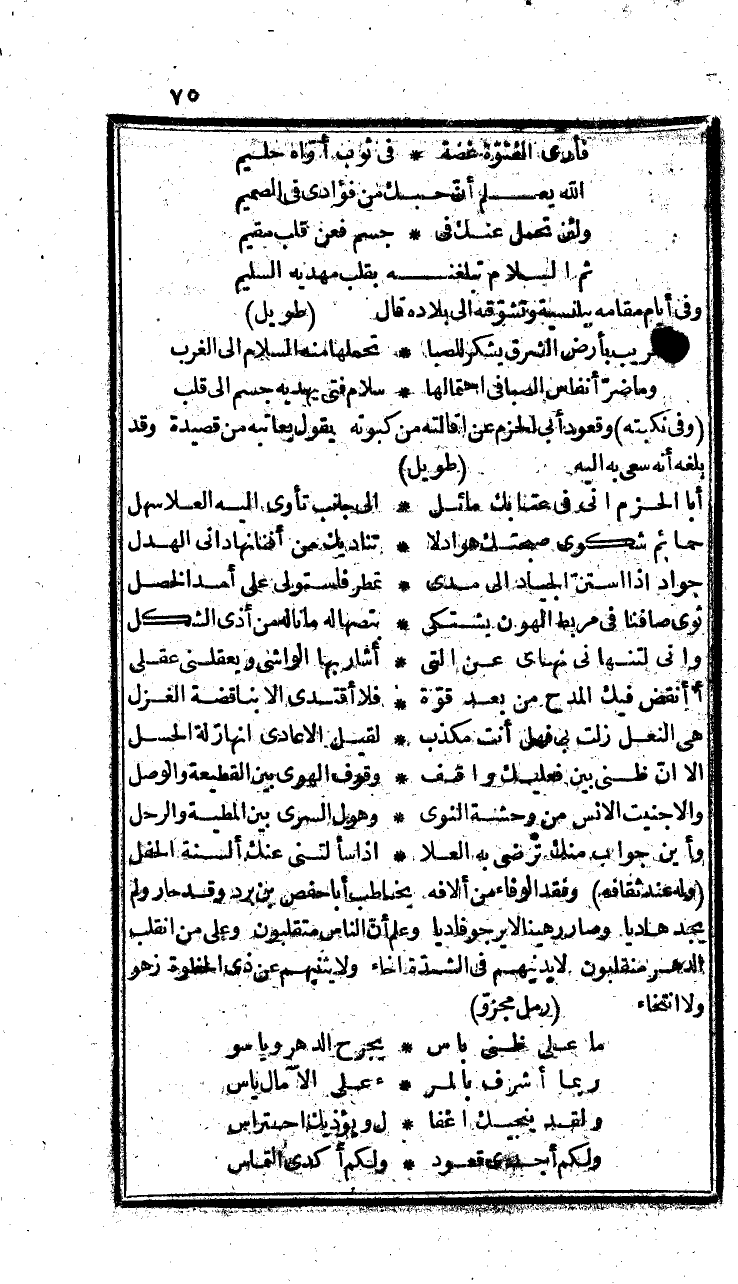 ٧٥
فأرى الفتوة غضة * فى ثوب أواه حليم
الله يعـلم أن حبـك من فؤادى فى الصميم
ولئن تحمل عنـك فى * جسم فعن قلب مقيم
ثم الـسلام تبلغنـه بقلب مهديه السليم
وفى أيام مقامه ببلنسية وتشوقه الى بلاده قال (طويل)
غريب بأرض الشرق يشكر للصبا * تحملها منه السلام الى الغرب
وما ضر أنفاس الصبا فى احتمالها * سلام فتى يهديه جسم الى قلب
(وفى نكبته) وقعود أبى الحزم عن اقالته من كبوته يقول يعاتبه من قصيدة وقد
بلغه أنه سعى به اليه (طويل)
أبا الحزم انى فى عتابك مائل * الى جانب تأوى اليه العلا سهل
حمائم شكوى صبحتك هوادلا * تناديك من أفنانها دانى الهدل
جواد اذا استن الجياد الى مدى * تمطر فاستولى على أمد الخصل
ثوى صافنا فى مربط الهون يشتكى * بتصهاله ما ناله من أذى الشكل
وانى لتنهانى نهاى عن التى * أشار بها الواشى ويعقلنى عقلى
أأنقض فيك المدح من بعد قوة * فلا أقتدى الا بناقضة الغزل
هى النعل زلت بى فهل أنت مكذب * لقيل الاعادى انها زلة الحسل
الا ان ظنى بين فعليك واقف * وقوف الهوى بين القطيعة والوصل
والا جنيت الانس من وحشة النوى * وهول السرى بين المطية والرحل
وأين جواب منك ترضى به العلا * اذا سألتنى عنك ألسنة الحفل
(وله عند ثقافه) وفقد الوفاء من ألافه يخاطب أبا حفص بن برد وقد حار ولم
يجد هاديا وصار رهينا لا يرجو فاديا وعلم أن الناس متقلبون وعلى من انقلب
الدهر منقلبون لا يدنيهم فى الشدة اخاء ولا يثنيهم عن ذى الحظوة زهو
ولا انتخاء (رمل مجزو)
ما على ظنى باس * يجرح الدهر وياسو
ربما أشرف بالمر * ء على الآمال ياس
ولقد ينجيك اغفا * ل ويؤذيك احتراس
ولكم أجدى قعود * ولكم أكدى التماس